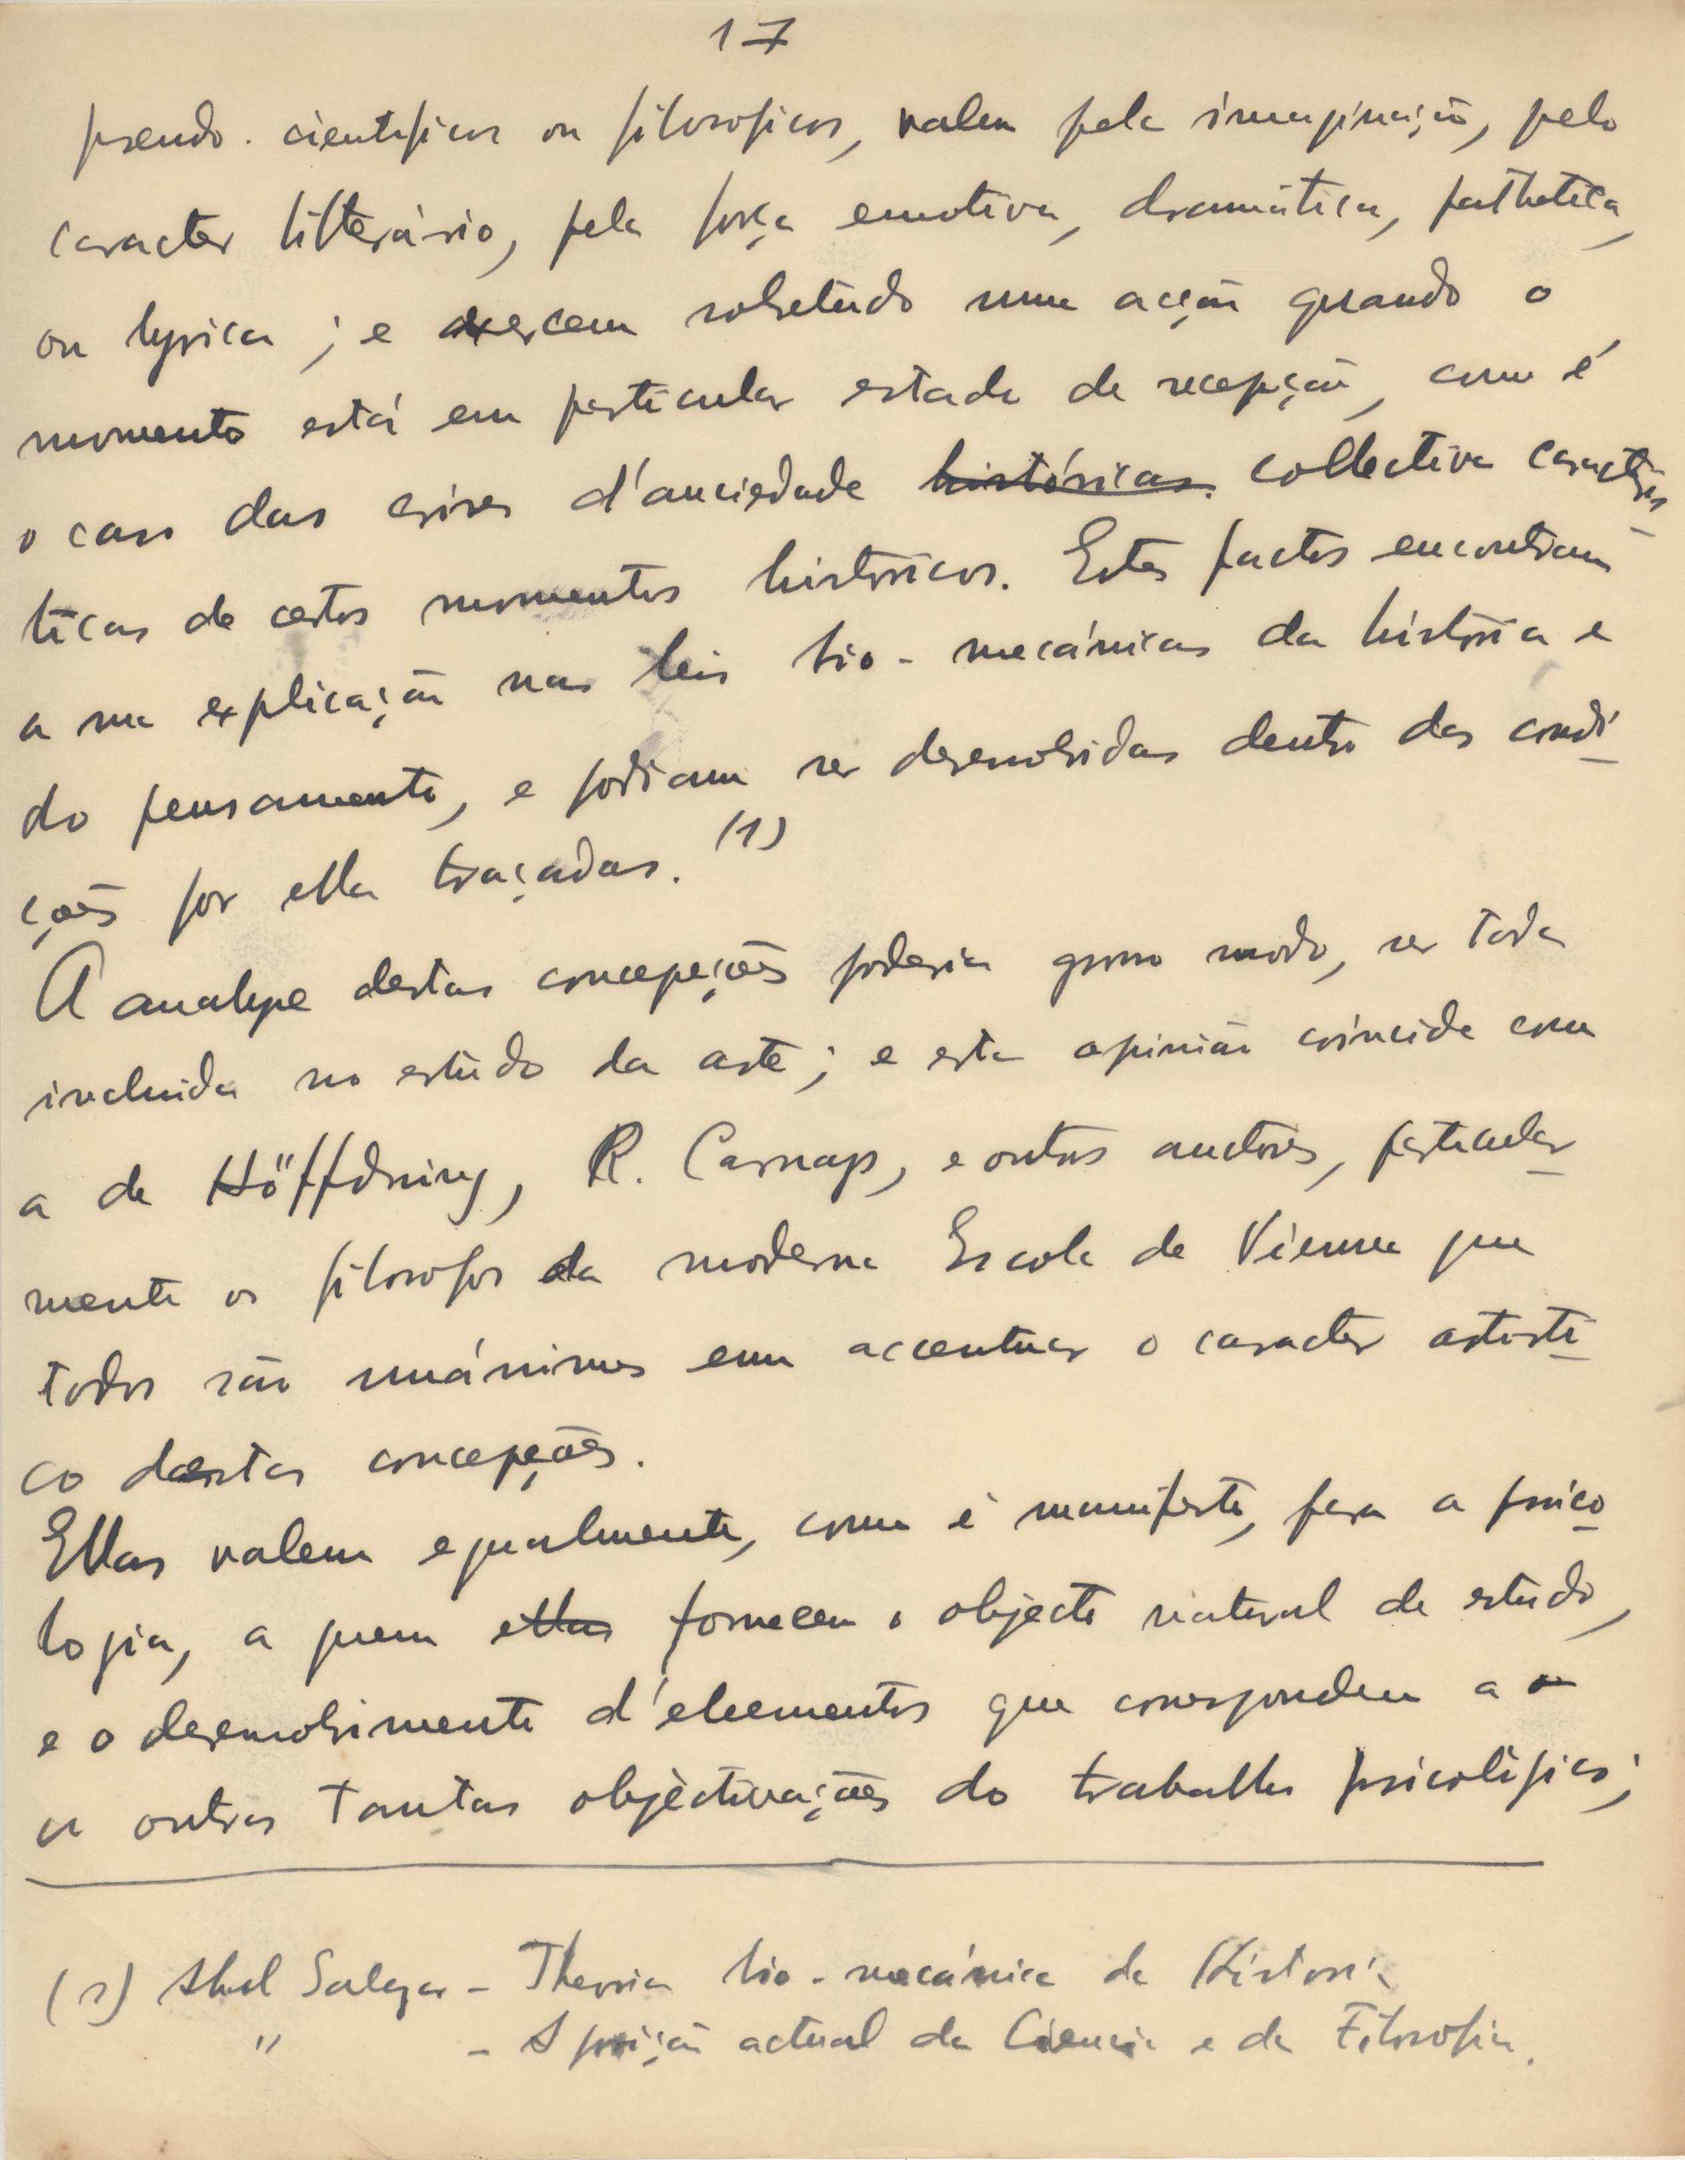 17
pseudo-cientificos ou filosoficos, valem pela imaginação, pelo
caracter litterário, pela força emotiva, dramática, pathetica,
ou lyrica; e exercem sobretudo uma acção quando o
momento está em particular estado de recepção, como é
o caso das crises d'anciedade históricas collectiva caracteris-
ticas de certos momentos históricos. Estes factos encontram
a sua explicação nas leis bio-mecánicas da história e
do pensamento, e podiam ser desenvolvidas dentro das condi-
ções por ella traçadas. (1)
A analyse destas concepções poderia grosso modo, ser toda
incluida no estudo da arte; e esta opinião coincide com
a de Höffdning, R. Carnap, e outros auctores, particular-
mente os filosofos da moderna Escola de Vienna que
todos são unánimes em accentuar o caracter artisti-
co destas concepções.
Ellas valem egualmente, como é manifesto, para a psico-
logia, a quem ellas fornecem o objecto natural de estudo,
e o desenvolvimento d'elementos que correspondem a
outras tantas objectivações do trabalho psicológico;
(1) Abel Salazar - Theoria bio-mecánica da História
" - A posição actual da Ciencia e da Filosofia.